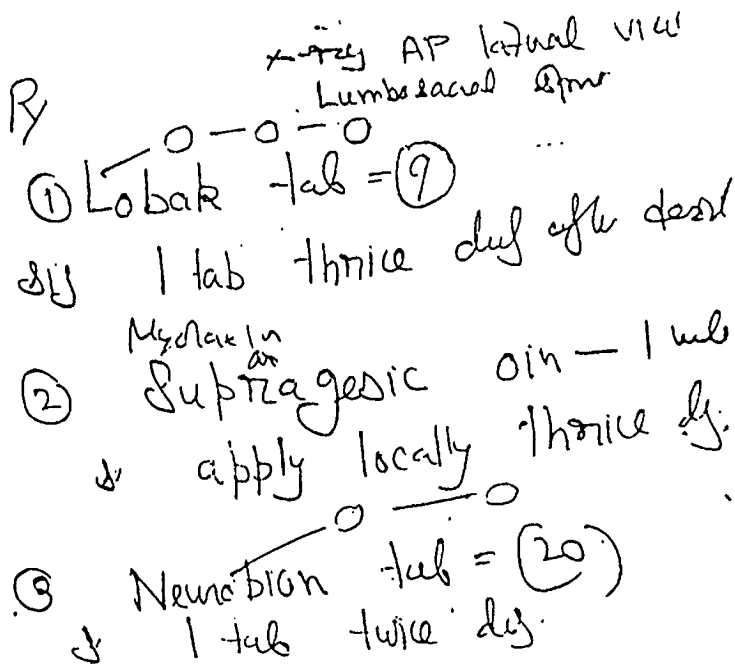 x-ray AP lateral view
Lumbosacral Spine
Rx
O — O — O
① Lobak tab = (9)
sig 1 tab thrice daily after
Myolaxin
or
② Supragesic oin — 1
s apply locally thrice dly.
O — O
③ Neurobion tab = (20)
s 1 tab twice dly.